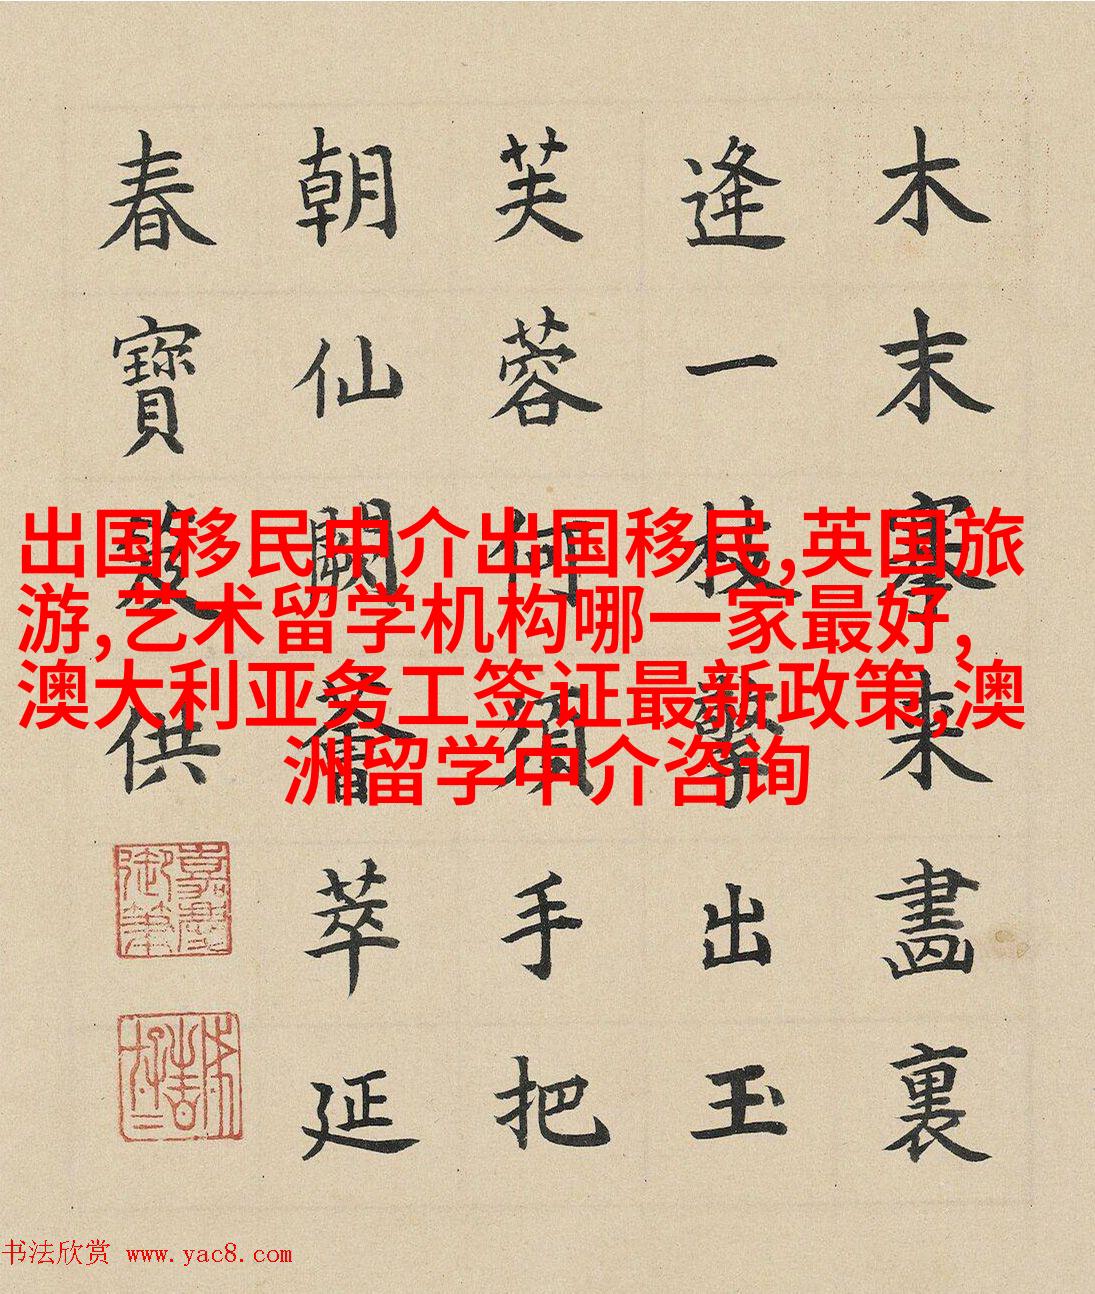 木末搴来畫裏
逢一枝擎出玉
芙蓉何須手把
朝仙闕薈萃延
春寶笈供
嘉慶御筆
出国移民中介出国移民,英国旅
游,艺术留学机构哪一家最好,
澳大利亚务工签证最新政策,澳
洲留学中介咨询
书法欣赏 www.yac8.com